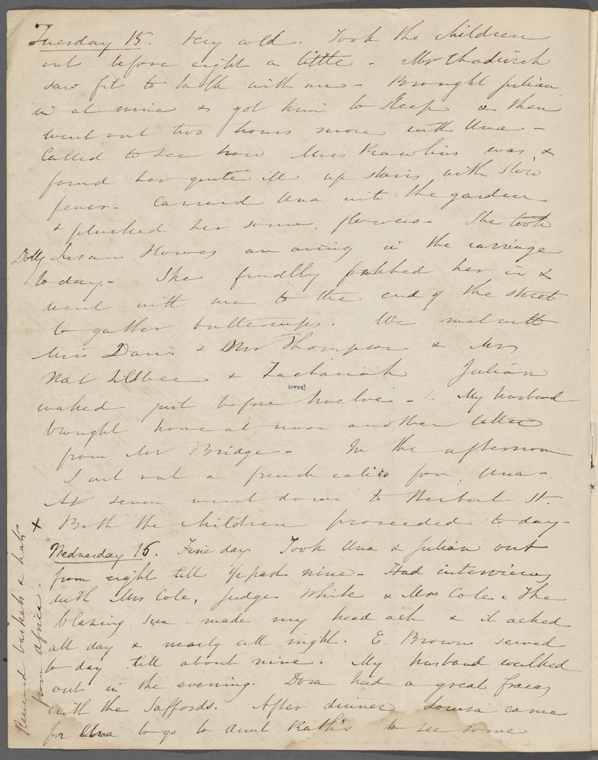 Tuesday 15. Very cold. Took the children
out before eight a little. Mr Chadwick
saw fit to talk with me. Brought Julian
in at nine & got him to sleep & then
went out two hours more with Una.
Called to see how Mrs Rawlins was, &
found her quite ill up stairs with slow
fever. Carried Una into the garden
& plucked her some flowers. She took
Dolly Susan Howes an airing in the carriage
to day. She finally her in &
went with me to the end of the street
to gather buttercups. We met with
Miss Davis & Mrs Thompson & Mrs
Nat & Zachariah Julian
waked just before twelve. My husband
brought home at noon another letter
from Mr Bridge. In the afternoon
I cut out a french calico for Una.
At seven went down to Herbert St.
+ Both the children proceeded to day.
Wednesday 16. Fine day. Took Una & Julian out
from eight till ½ past nine. Had interviews
with Mrs Cole, Judge White & Mrs Cole. The
blazing sun made my head ache & it ached
all day & nearly all night. E. Brown sewed
to day till about nine. My husband walked
out in the evening. Dora had a great
with the Saffords. After dinner Louisa came
for Una to go to Aunt Ruth's to see some
Received baskets & hats
from Africa.